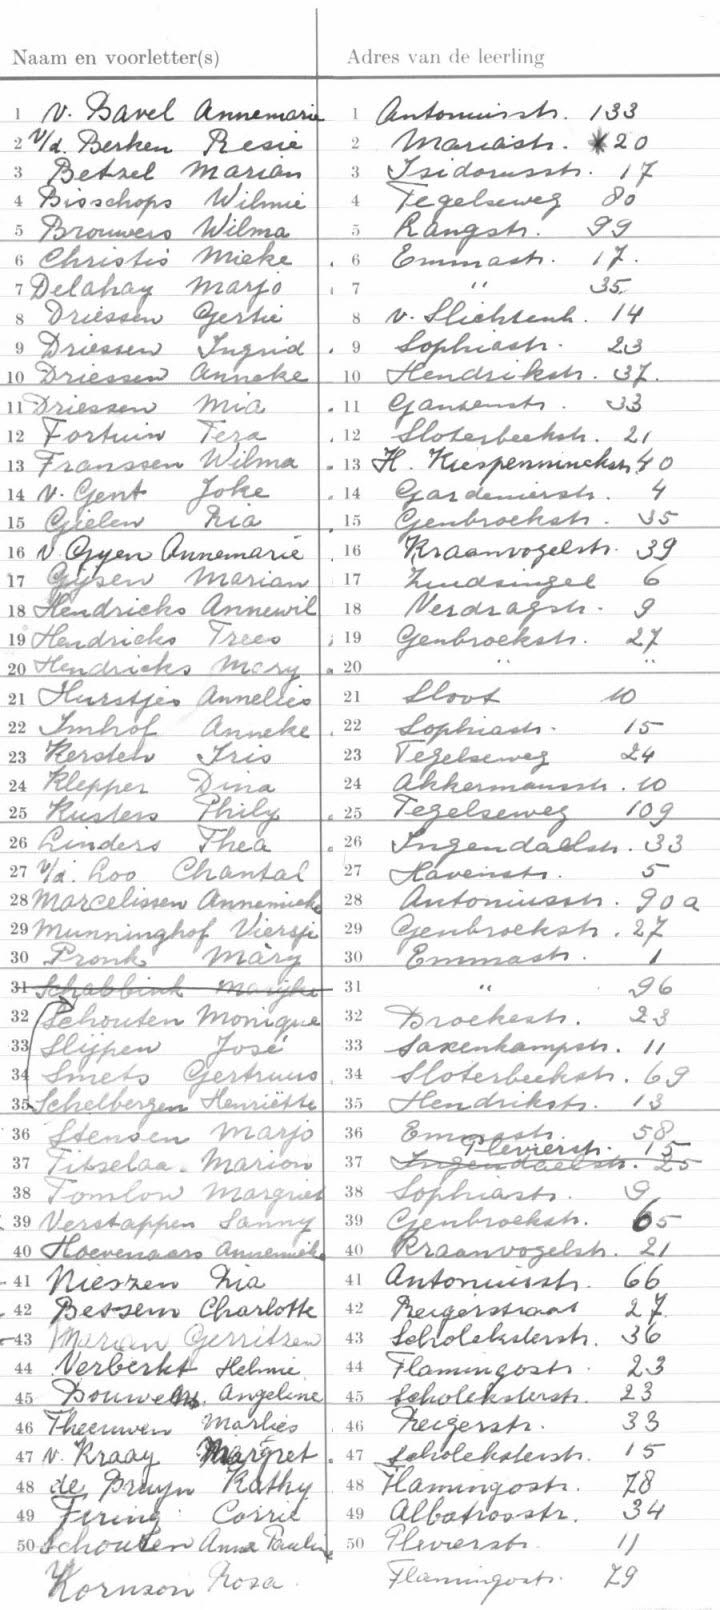 Naam en voorletter(s) Adres van de leerling
1 v. Bavel Annemarie 1 Antoniusstr. 133
2 v/d. Berken Resie 2 Mariastr. 20
3 Betzel Marian 3 Isidorusstr. 17
4 Bisschops Wilmie 4 Tegelseweg 80
5 Brouwers Wilma 5 Rangstr. 99
6 Christis Mieke 6 Emmastr. 17.
7 Delahay Marjo 7 " 35.
8 Driessen Gertie 8 v. Slichtenh. 14
9 Driessen Ingrid 9 Sophiastr. 23
10 Driessen Anneke 10 Hendrikstr. 37.
11 Driessen Mia 11 Gansenstr. 33
12 Fortuin Tera 12 Sloterbeekstr. 21
13 Franssen Wilma 13 H. Kiespenninckstr. 40
14 v. Gent Joke 14 Gardeniersstr. 4
15 Gielen Ria 15 Genbroekstr. 35
16 v. Gyen Annemarie 16 Kraanvogelstr. 39
17 Gijsen Marian 17 Zuidsingel 6
18 Hendricks Annewil 18 Verdragstr. 9
19 Hendricks Trees 19 Genbroekstr. 27
20 Hendricks Mary 20 " "
21 Hurstjes Annelies 21 Sloot 10
22 Imhof Anneke 22 Sophiastr. 15
23 Kersten Iris 23 Tegelseweg 24
24 Klepper Dina 24 Akkermansstr. 10
25 Kusters Phily 25 Tegelseweg 109
26 Linders Thea 26 Ingendaelstr. 33
27 v/d. Loo Chantal 27 Havenstr. 5
28 Marcelissen Annemieke 28 Antoniusstr. 90a
29 Munninghof Viersje 29 Genbroekstr. 27
30 Pronk Mary 30 Emmastr. 1
31 Schabbink Marijke 31 " 96
32 Schouten Monique 32 Broekestr. 23
33 Slijpen José 33 Saxenkampstr. 11
34 Smets Gertruus 34 Sloterbeekstr. 69
35 Schelbergen Henriëtte 35 Hendrikstr. 13
36 Stensen Marjo 36 Emmastr. 58
Plevierstr. 15
37 Titselaa. Marion 37 Ingendaelstr. 25
38 Tomlow Margriet 38 Sophiastr. 9
39 Verstappen Sanny 39 Genbroekstr. 65
40 Hoevenaars Annemieke 40 Kraanvogelstr. 21
41 Nieszen Ria 41 Antoniusstr. 66
42 Bessem Charlotte 42 Reigerstraat 27.
43 Marian Gerritzen 43 Scholeksterstr. 36
44 Verberkt Helmie 44 Flamingostr. 23
45 Angeline 45 Scholeksterstr. 23
46 Theeuwen Marlies 46 Reigerstr. 33
47 v. Kraay Margret 47 Scholeksterstr. 15
48 de Bruyn Kathy 48 Flamingostr. 78
49 Firing Corrie 49 Albatrosstr. 34
50 Schouten Anne Pauline 50 Plevierstr. 11
Kornson Rosa. Flamingostr. 79